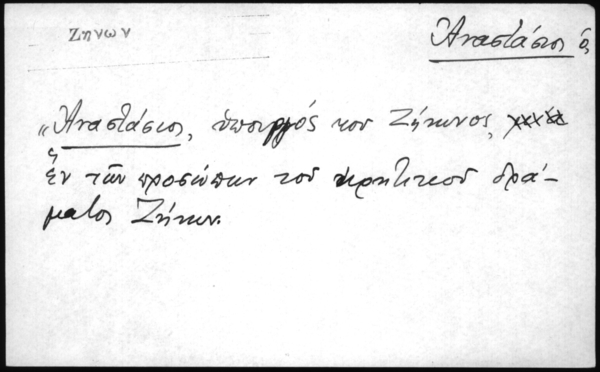 Ζηνων
Ἀναστάσιος ὁ,
"Ἀναστάσιος, ὑπουργός του Ζήνωνος,
ἓν τῶν προσώπων τοῦ κρητικοῦ δρά-
ματος Ζήνων.